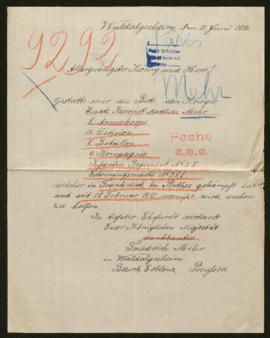 Waldalgesheim, den 15 Juni 1916
Paris
9292
Allergnädigster König und Herr!
Mehr
Gestatte mir die Bitte den Krieger
Kriegs Matthias Mehr
8. Armeekorps
16. Division
Bataillon
6. Kompagnie
Infanterie Regiment No 28
Erkennungsmarke No 265
Recho
e.a.e
welcher in Frankreich in Perthes gekämpft hat
und seit 18. Februar 1915 vermisst wird, suchen
zu helfen.
In tiefster Ehrfurcht verharrt
Euer Königlichen Majestät
dankbarten
Friedrich Mehr
in Waldalgesheim
Bezirk Coblenz, Preußen.